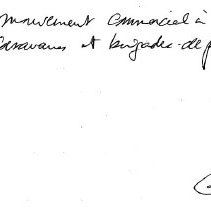 mouvement commercial à
caravanes et brigades de